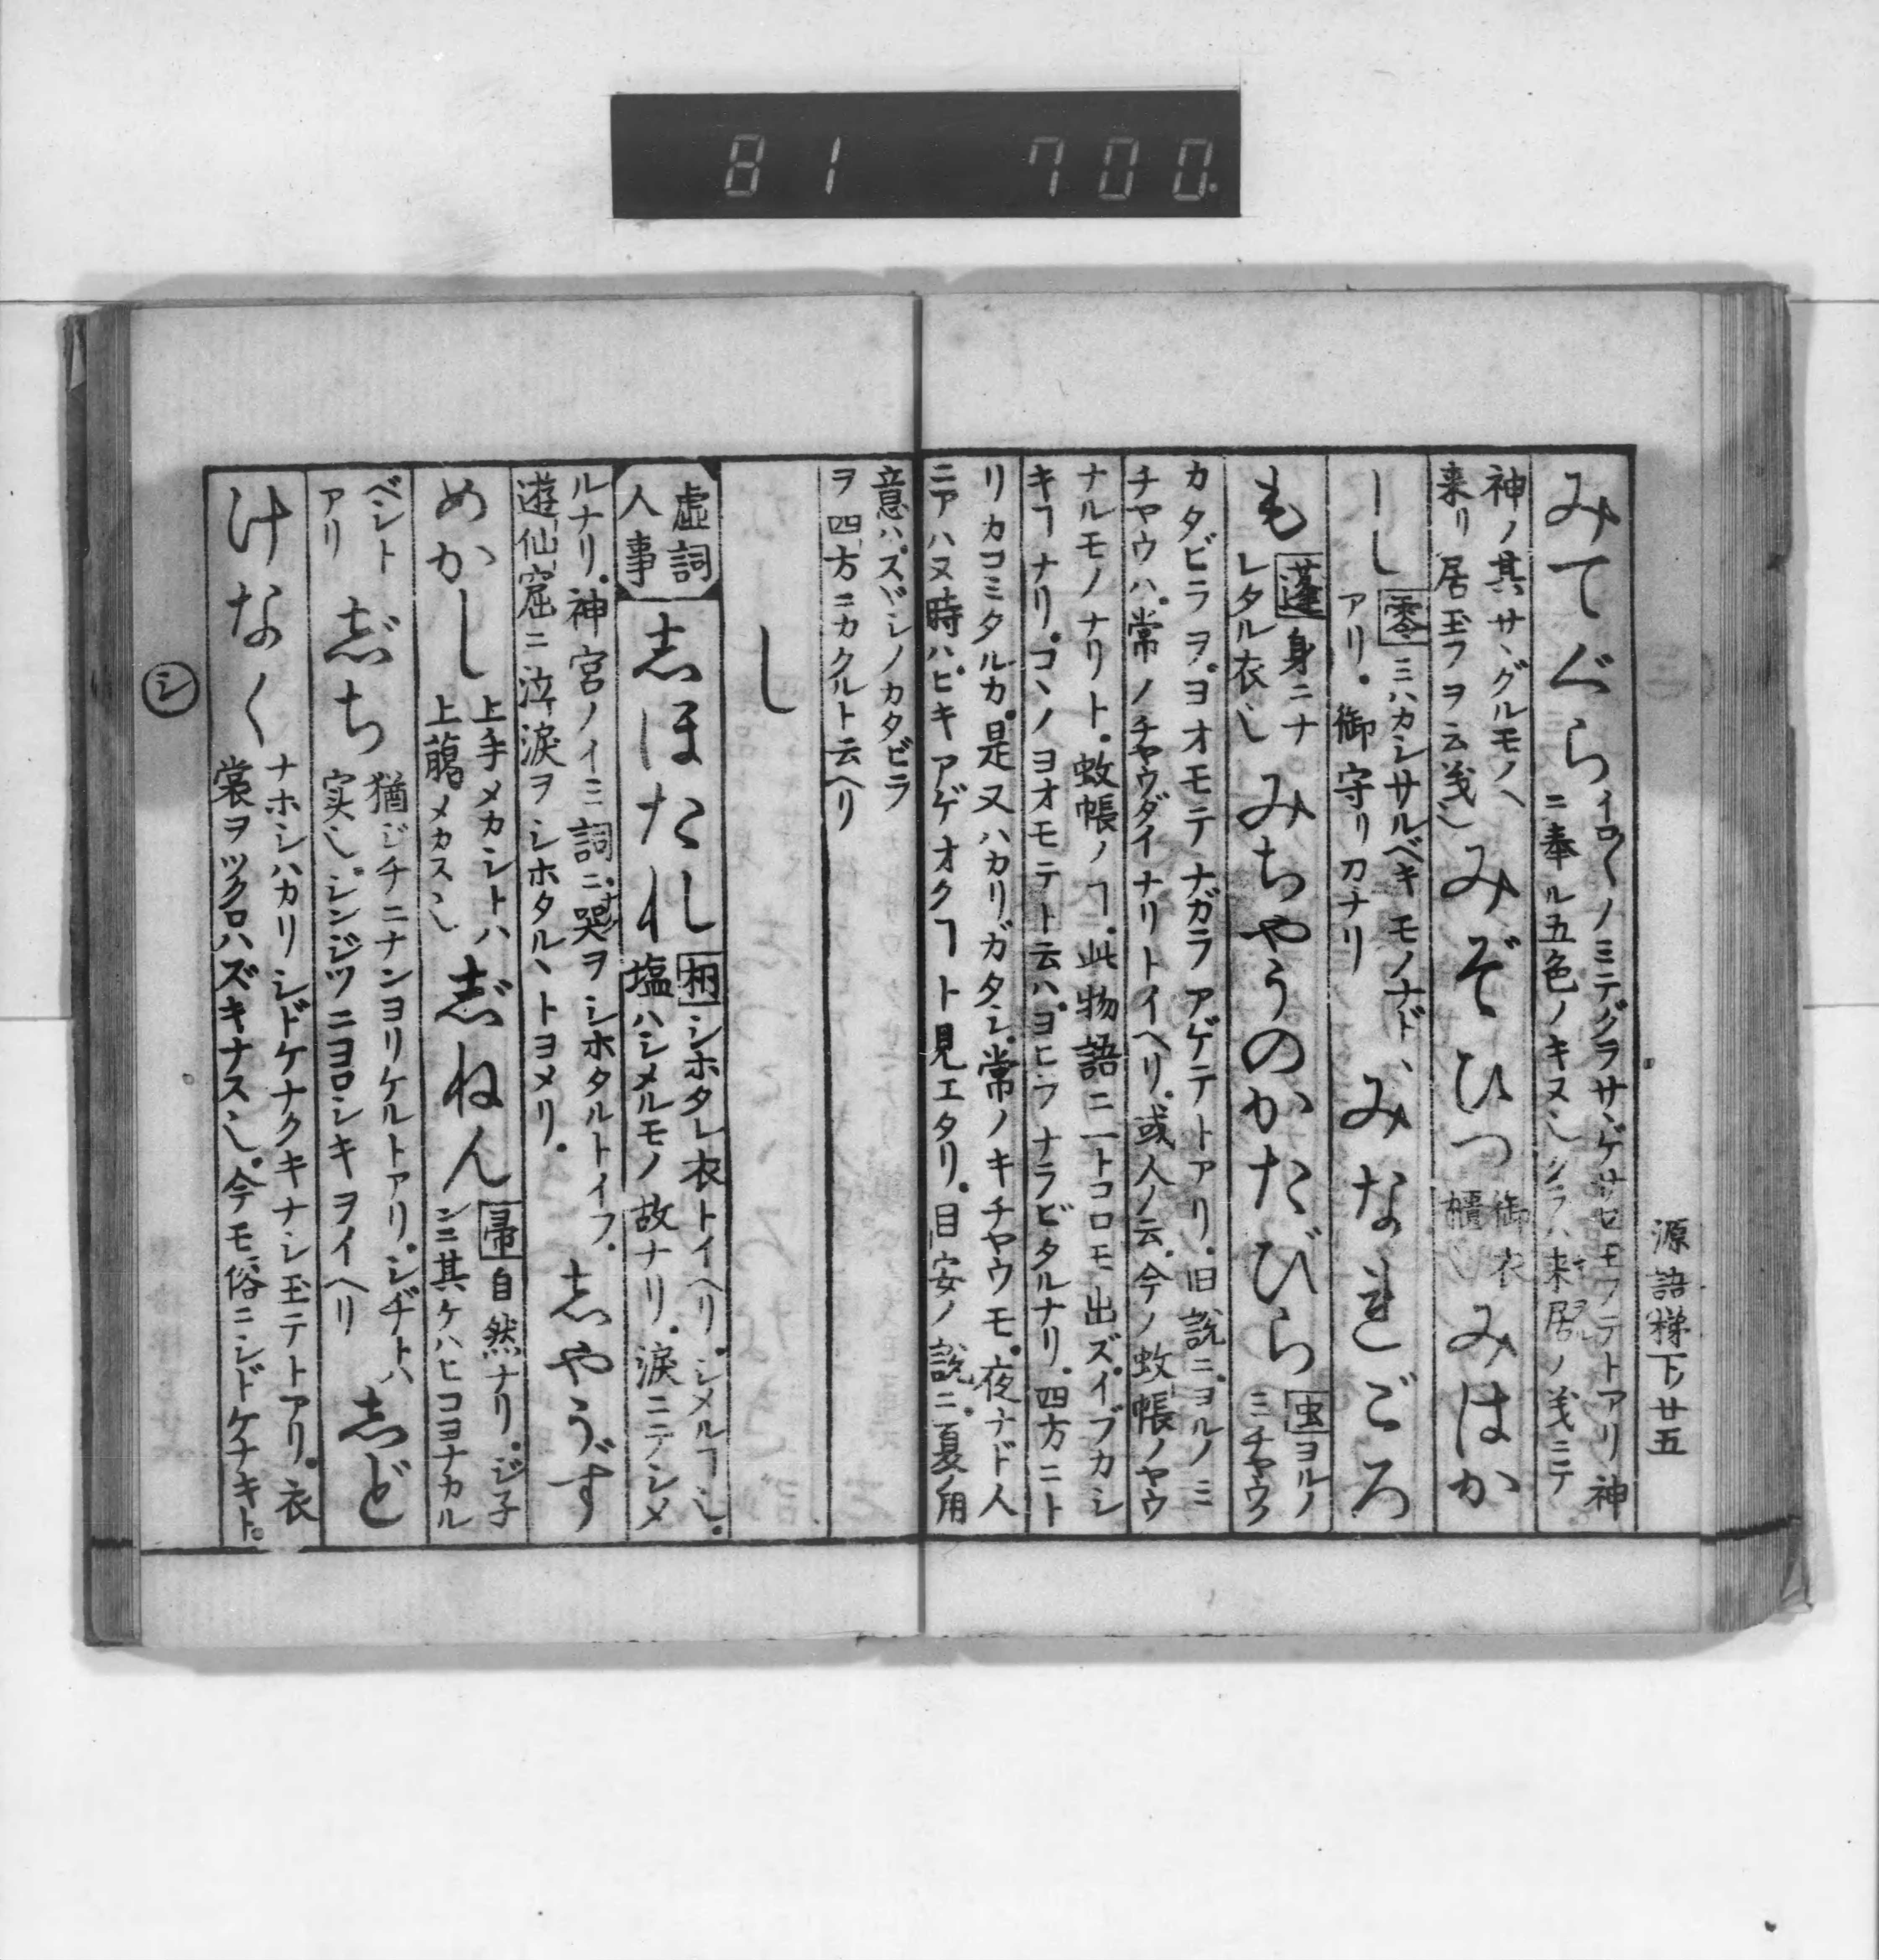 81 700.
源語梯下ノ廿五
みてぐら イロ〳〵ノミテグラサヽゲサセ玉フテトアリ神
ニ奉ル五色ノキヌ也クラハ来居ノ義ニテ
神ノ其サヽグルモノヘ
来リ居玉フヲ云義也 みぞひつ 御衣
櫃也 みはか
しし 零 ミハカシサルベキモノナド
アリ。御守リ刀ナリ みなれごろ
も 蓬 身ニナ
レタル衣也 みちやうのかたびら 虫 ヨルノ
ミチヤウノ
カタビラヲ。ヨオモテナガラアゲテトアリ。旧説ニ。ヨルノミ
チヤウハ。常ノチヤウダイナリトイヘリ。或人ノ云。今ノ蚊帳ノヤウ
ナルモノナリト。蚊帳ノヿ。此物語ニ一トコロモ出ズ。イブカシ
キヿナリ。コヽノヨオモテト云ハ。ヨヒラナラビタルナリ。四方ニト
リカコミタルカ。是又ハカリガタシ。常ノキチヤウモ。夜ナド人
ニアハヌ時ハ。ヒキアゲオクヿト見エタリ。目安ノ説ニ。夏ノ用
意ハ。スヾシノカタビラ
ヲ四方ニカクルト云ヘリ
し
虚詞
人事
志ほたれ 桐 シホタレ衣トイヘリ。シメルヿ也。
塩ハシメルモノ故ナリ。涙ニテシメ
ルナリ。神宮ノイミ詞ニ。哭ヲシホタルトイフ。
遊仙窟ニ泣涙ヲシホタルヽトヨメリ。 志やうず
めかし 上手メカシトハ
上﨟メカス也 志゛ねん 帚 自然ナリ。ジ子
ンニ其ケハヒコヨナカル
ベシト
アリ 志゛ち 猶ジチニナンヨリケルトアリ。シヂトハ
実也。シンジツニヨロシキヲイヘリ 志ど
けなく ナホシハカリシドケナクキナシ玉テトアリ。衣
裳ヲツクロハズキナス也。今モ俗ニシドケナキト。
シ